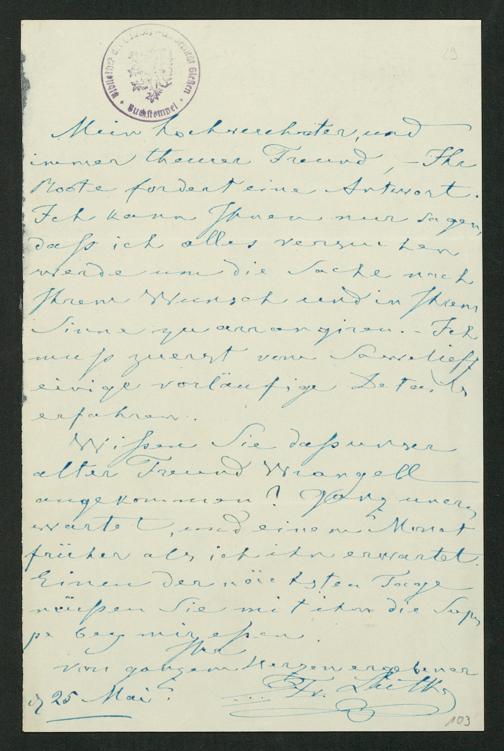 Buchstempel
19
Mein hochverehrter und
immer theurer Freund, – Ihr
Noote fordert eine Antwort.
Ich kann Ihnen nur sagen,
daß ich alles versuchen
werde um die Sache nach
Ihrem Wunsch und in Ihrem
Sinne zu arrangiren. – Ich
muß zuerst vom Sawelieff
einige vorläufige Details
erfahren.
Wißen Sie daß unser
alter Freund Wrangell
angekommen? Ganz uner,
wartet, und einem Monat
früher als ich ihn erwartet.
Einen der nächsten Tage
müßen Sie mit ihm die Sup,
pe bey mir eßen.
Ihr
von ganzem Herzen ergebener
Fr. Lütke
25 Mai.
103